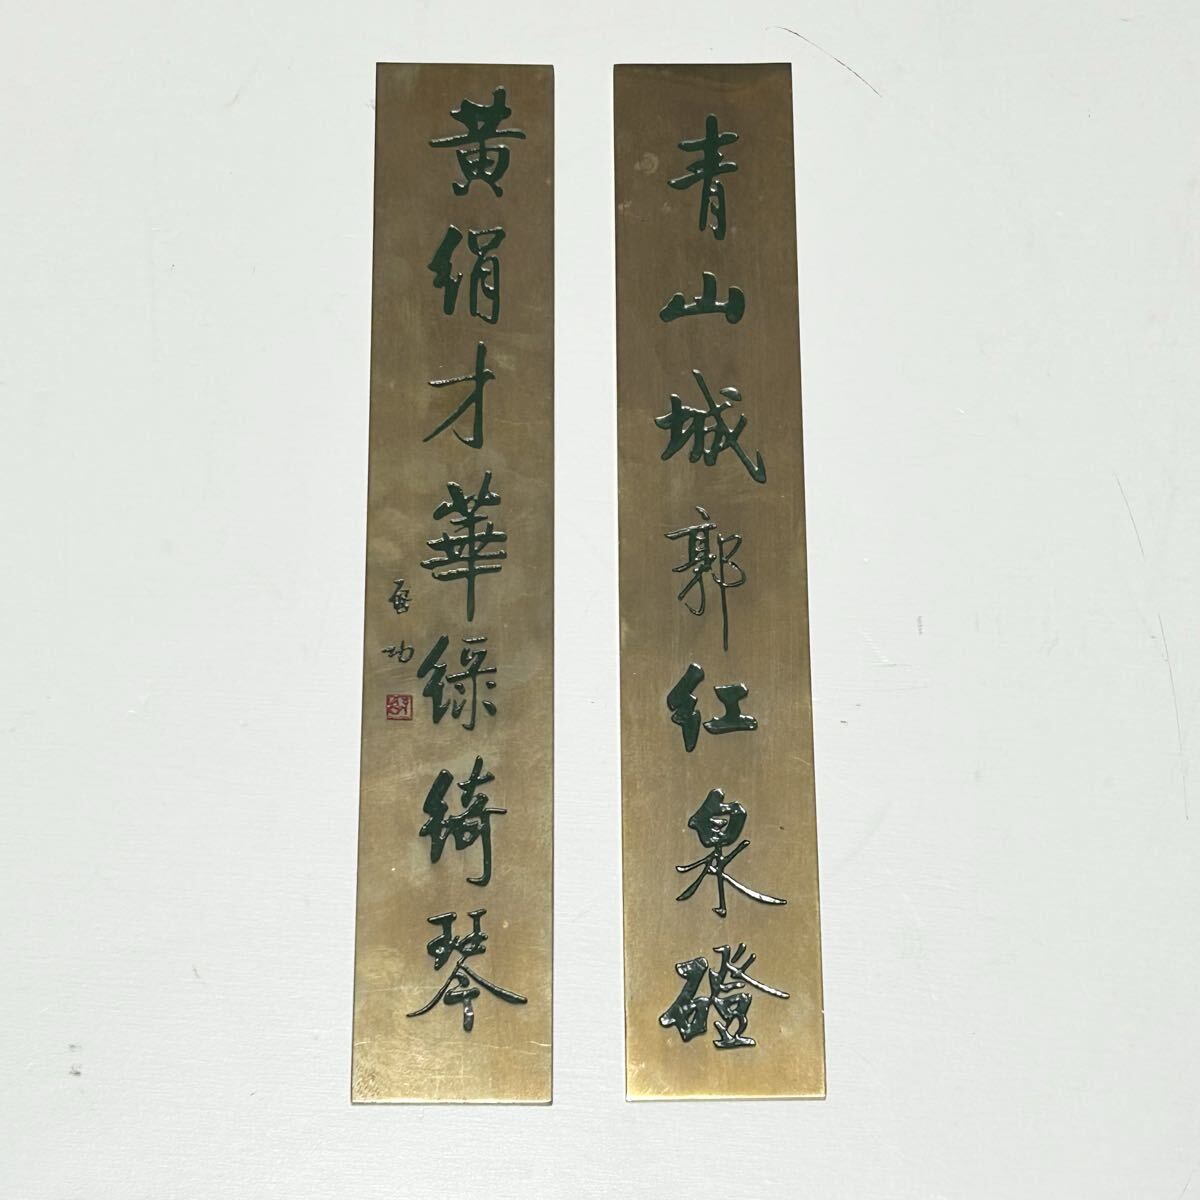 青山城郭红泉磴
黄绢才華緑綺琴
启功